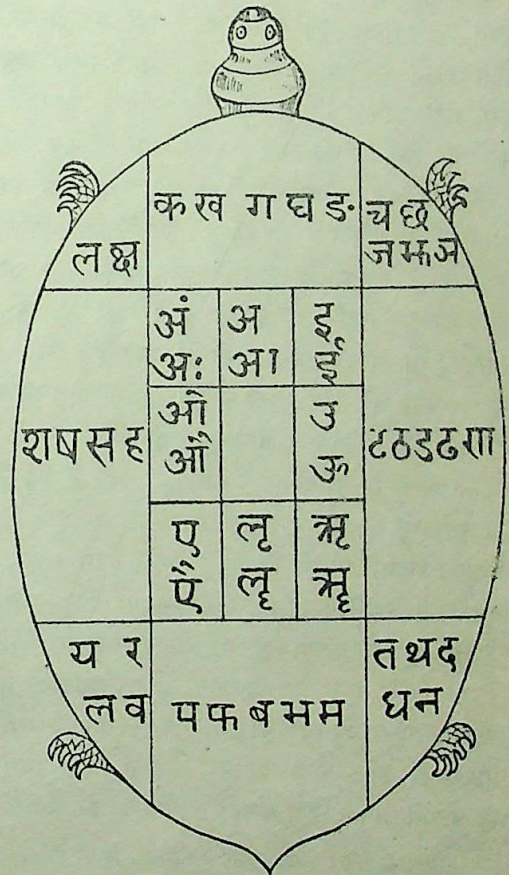 क ख ग घ ङ
च छ
ज झ ञ
ल क्ष
अं
अः
अ
आ
इ
ई
श ष स ह
ओ
औ
उ
ऊ
ट ठ ड ढ ण
ए
ऐ
लृ
लॄ
ऋ
ॠ
य र
ल व
प फ ब भ म
त थ द
ध न